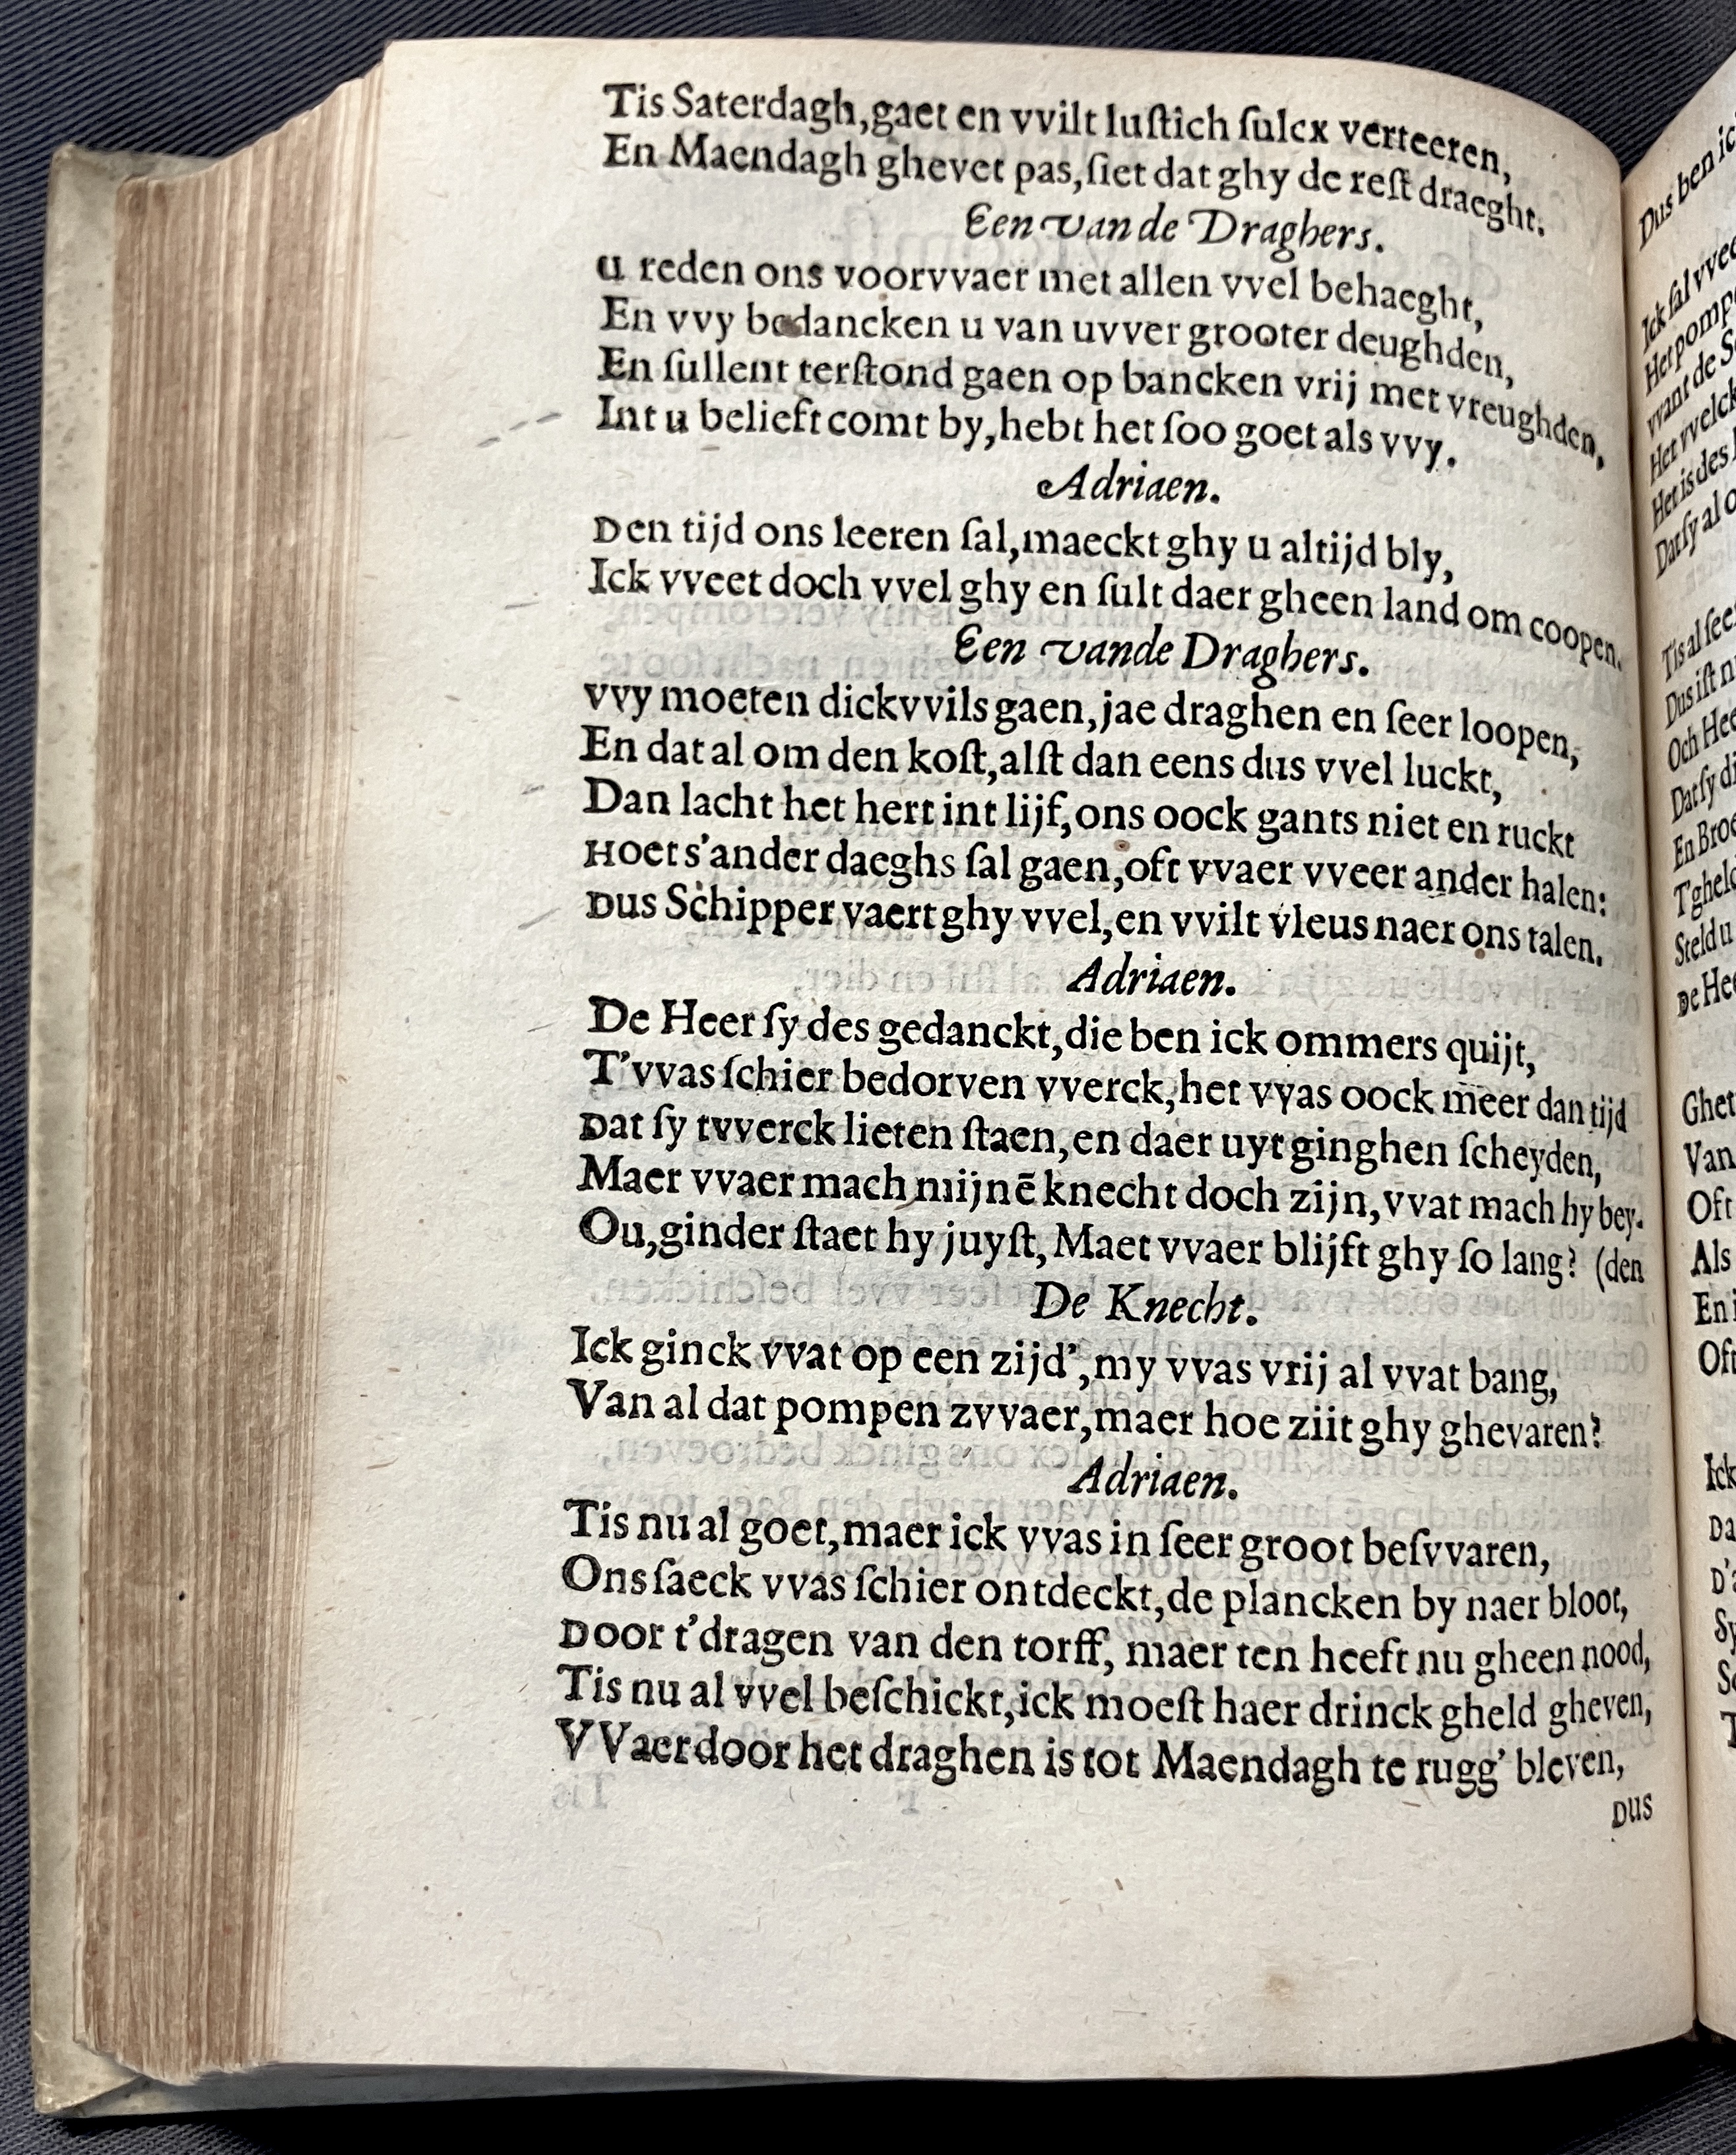 Tis Saterdagh,gaet en vvilt luſtich ſulcx verteeren,
En Maendagh ghevet pas,ſiet dat ghy de reſt draeght.
Een van de Draghers.
u reden ons voorvvaer met allen vvel behaeght,
En vvy bedancken u van uvver grooter deughden,
En ſullent terſtond gaen op bancken vrij met vreughden,
Int u belieft comt by,hebt het ſoo goet als vvy.
Adriaen.
Den tijd ons leeren ſal,maeckt ghy u altijd bly,
Ick vveet doch vvel ghy en ſult daer gheen land om coopen.
Een vande Draghers.
vvy moeten dickvvils gaen,jae draghen en ſeer loopen,
En dat al om den koſt,alſt dan eens dus vvel luckt,
Dan lacht het hert int lijf,ons oock gants niet en ruckt
Hoet s'ander daeghs ſal gaen,oft vvaer vveer ander halen:
Dus Schipper vaert ghy vvel,en vvilt vleus naer ons talen.
Adriaen.
De Heer ſy des gedanckt,die ben ick ommers quijt,
T'vvas ſchier bedorven vverck,het vvas oock meer dan tijd
Dat ſy tvverck lieten ſtaen,en daer uyt ginghen ſcheyden,
Maer vvaer mach mijnē knecht doch zijn,vvat mach hy bey.
Ou,ginder ſtaet hy juyſt, Maet vvaer blijft ghy ſo lang? (den
De Knecht.
Ick ginck vvat op een zijd',my vvas vrij al vvat bang,
Van al dat pompen zvvaer,maer hoe ziit ghy ghevaren?
Adriaen.
Tis nu al goet,maer ick vvas in ſeer groot beſvvaren,
Ons ſaeck vvas ſchier ontdeckt,de plancken by naer bloot,
Door t'dragen van den torff, maer ten heeft nu gheen nood,
Tis nu al vvel beſchickt,ick moeſt haer drinck gheld gheven,
VVaerdoor het draghen is tot Maendagh te rugg' bleven,
Dus
Dus ben
Ick ſal
Het
vvant de
Het
Het is des
Dat ſy al
Tis al
Dus iſt
Och
Dat ſy
En
Steld u
De
Van
Oft
Als
En
Ick